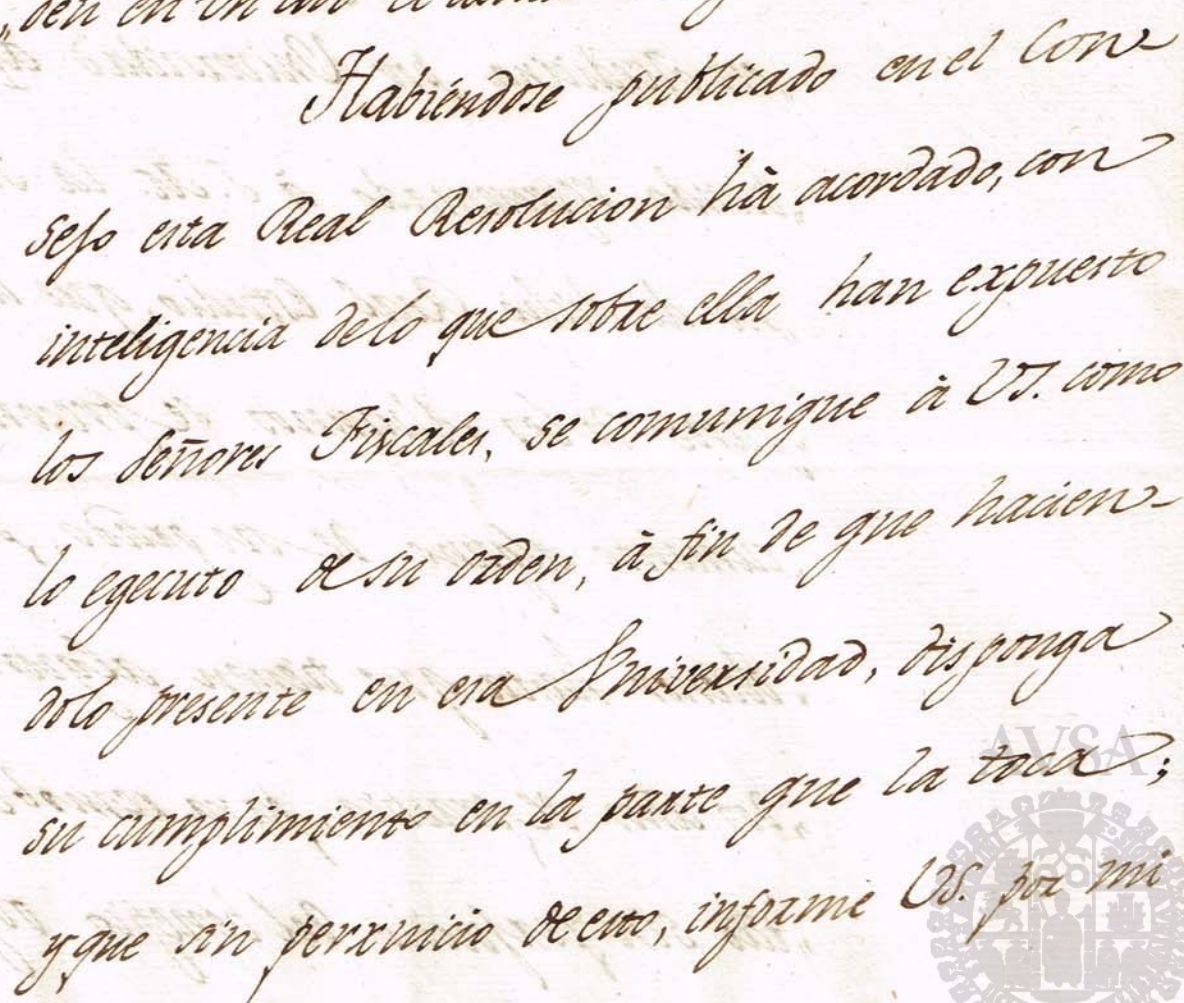 Habiéndose publicado en el Con-
sejo esta Real Resolucion hà acordado, con
inteligencia delo que sobre ella han expuesto
los Señores Fiscales, se comunique à VS. como
lo egecuto de su orden, à fin de que hacien-
dolo presente en esa Universidad, disponga
su cumplimiento en la parte que la toca;
y que sin perxuicio de esto, informe VS. por mi
AVSA